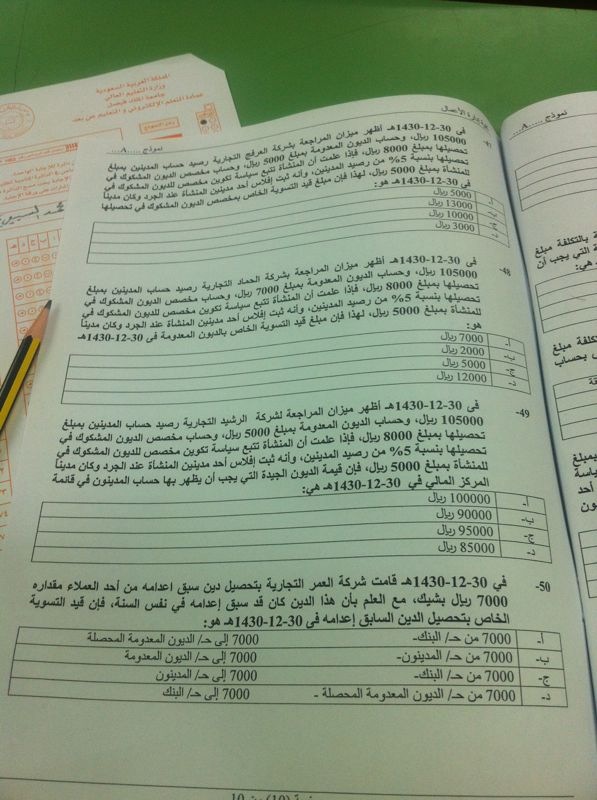 المملكة العربية السعودية
وزارة التعليم العالي
جامعة الملك فيصل
عمادة التعلم الإلكتروني و التعليم عن بعد
إدارة الأعمال
نموذج .....A...
فى 30-12-1430هـ أظهر ميزان المراجعة بشركة العرفج التجارية رصيد حساب المدينين بمبلغ
105000 ريال، وحساب الديون المعدومة بمبلغ 5000 ريال، وحساب مخصص الديون المشكوك في
تحصيلها بمبلغ 8000 ريال، فإذا علمت أن المنشأة تتبع سياسة تكوين مخصص للديون المشكوك في
تحصيلها بنسبة 5% من رصيد المدينين، وأنه ثبت إفلاس أحد مدينين المنشأة عند الجرد وكان مديناً
للمنشأة بمبلغ 5000 ريال، لهذا فإن مبلغ قيد التسوية الخاص بمخصص الديون المشكوك في تحصيلها
فى 30-12-1430هـ هو:
أ- 5000 ريال
ب- 13000 ريال
ج- 10000 ريال
د- 3000 ريال
48- فى 30-12-1430هـ أظهر ميزان المراجعة بشركة الحماد التجارية رصيد حساب المدينين بمبلغ
105000 ريال، وحساب الديون المعدومة بمبلغ 7000 ريال، وحساب مخصص الديون المشكوك في
تحصيلها بمبلغ 8000 ريال، فإذا علمت أن المنشأة تتبع سياسة تكوين مخصص للديون المشكوك في
تحصيلها بنسبة 5% من رصيد المدينين، وأنه ثبت إفلاس أحد مدينين المنشأة عند الجرد وكان مديناً
للمنشأة بمبلغ 5000 ريال، لهذا فإن مبلغ قيد التسوية الخاص بالديون المعدومة فى 30-12-1430هـ
هو:
أ- 7000 ريال
ب- 2000 ريال
ج- 5000 ريال
د- 12000 ريال
49- فى 30-12-1430هـ أظهر ميزان المراجعة لشركة الرشيد التجارية رصيد حساب المدينين بمبلغ
105000 ريال، وحساب الديون المعدومة بمبلغ 5000 ريال، وحساب مخصص الديون المشكوك في
تحصيلها بمبلغ 8000 ريال، فإذا علمت أن المنشأة تتبع سياسة تكوين مخصص للديون المشكوك في
تحصيلها بنسبة 5% من رصيد المدينين، وأنه ثبت إفلاس أحد مدينين المنشأة عند الجرد وكان مديناً
للمنشأة بمبلغ 5000 ريال، فإن قيمة الديون الجيدة التي يجب أن يظهر بها حساب المدينون في قائمة
المركز المالي في 30-12-1430هـ هي:
أ- 100000 ريال
ب- 90000 ريال
ج- 95000 ريال
د- 85000 ريال
50- في 30-12-1430هـ قامت شركة العمر التجارية بتحصيل دين سبق اعدامه من أحد العملاء مقداره
7000 ريال بشيك، مع العلم بأن هذا الدين كان قد سبق إعدامه في نفس السنة، فإن قيد التسوية
الخاص بتحصيل الدين السابق إعدامه فى 30-12-1430هـ هو:
أ- 7000 من حـ/ البنك- 7000 إلى حـ/ الديون المعدومة المحصلة
ب- 7000 من حـ/ المدينون- 7000 إلى حـ/ الديون المعدومة
ج- 7000 من حـ/ البنك- 7000 إلى حـ/ المدينون
د- 7000 من حـ/ الديون المعدومة المحصلة - 7000 إلى حـ/ البنك
(10) من 10
نموذج .....A...